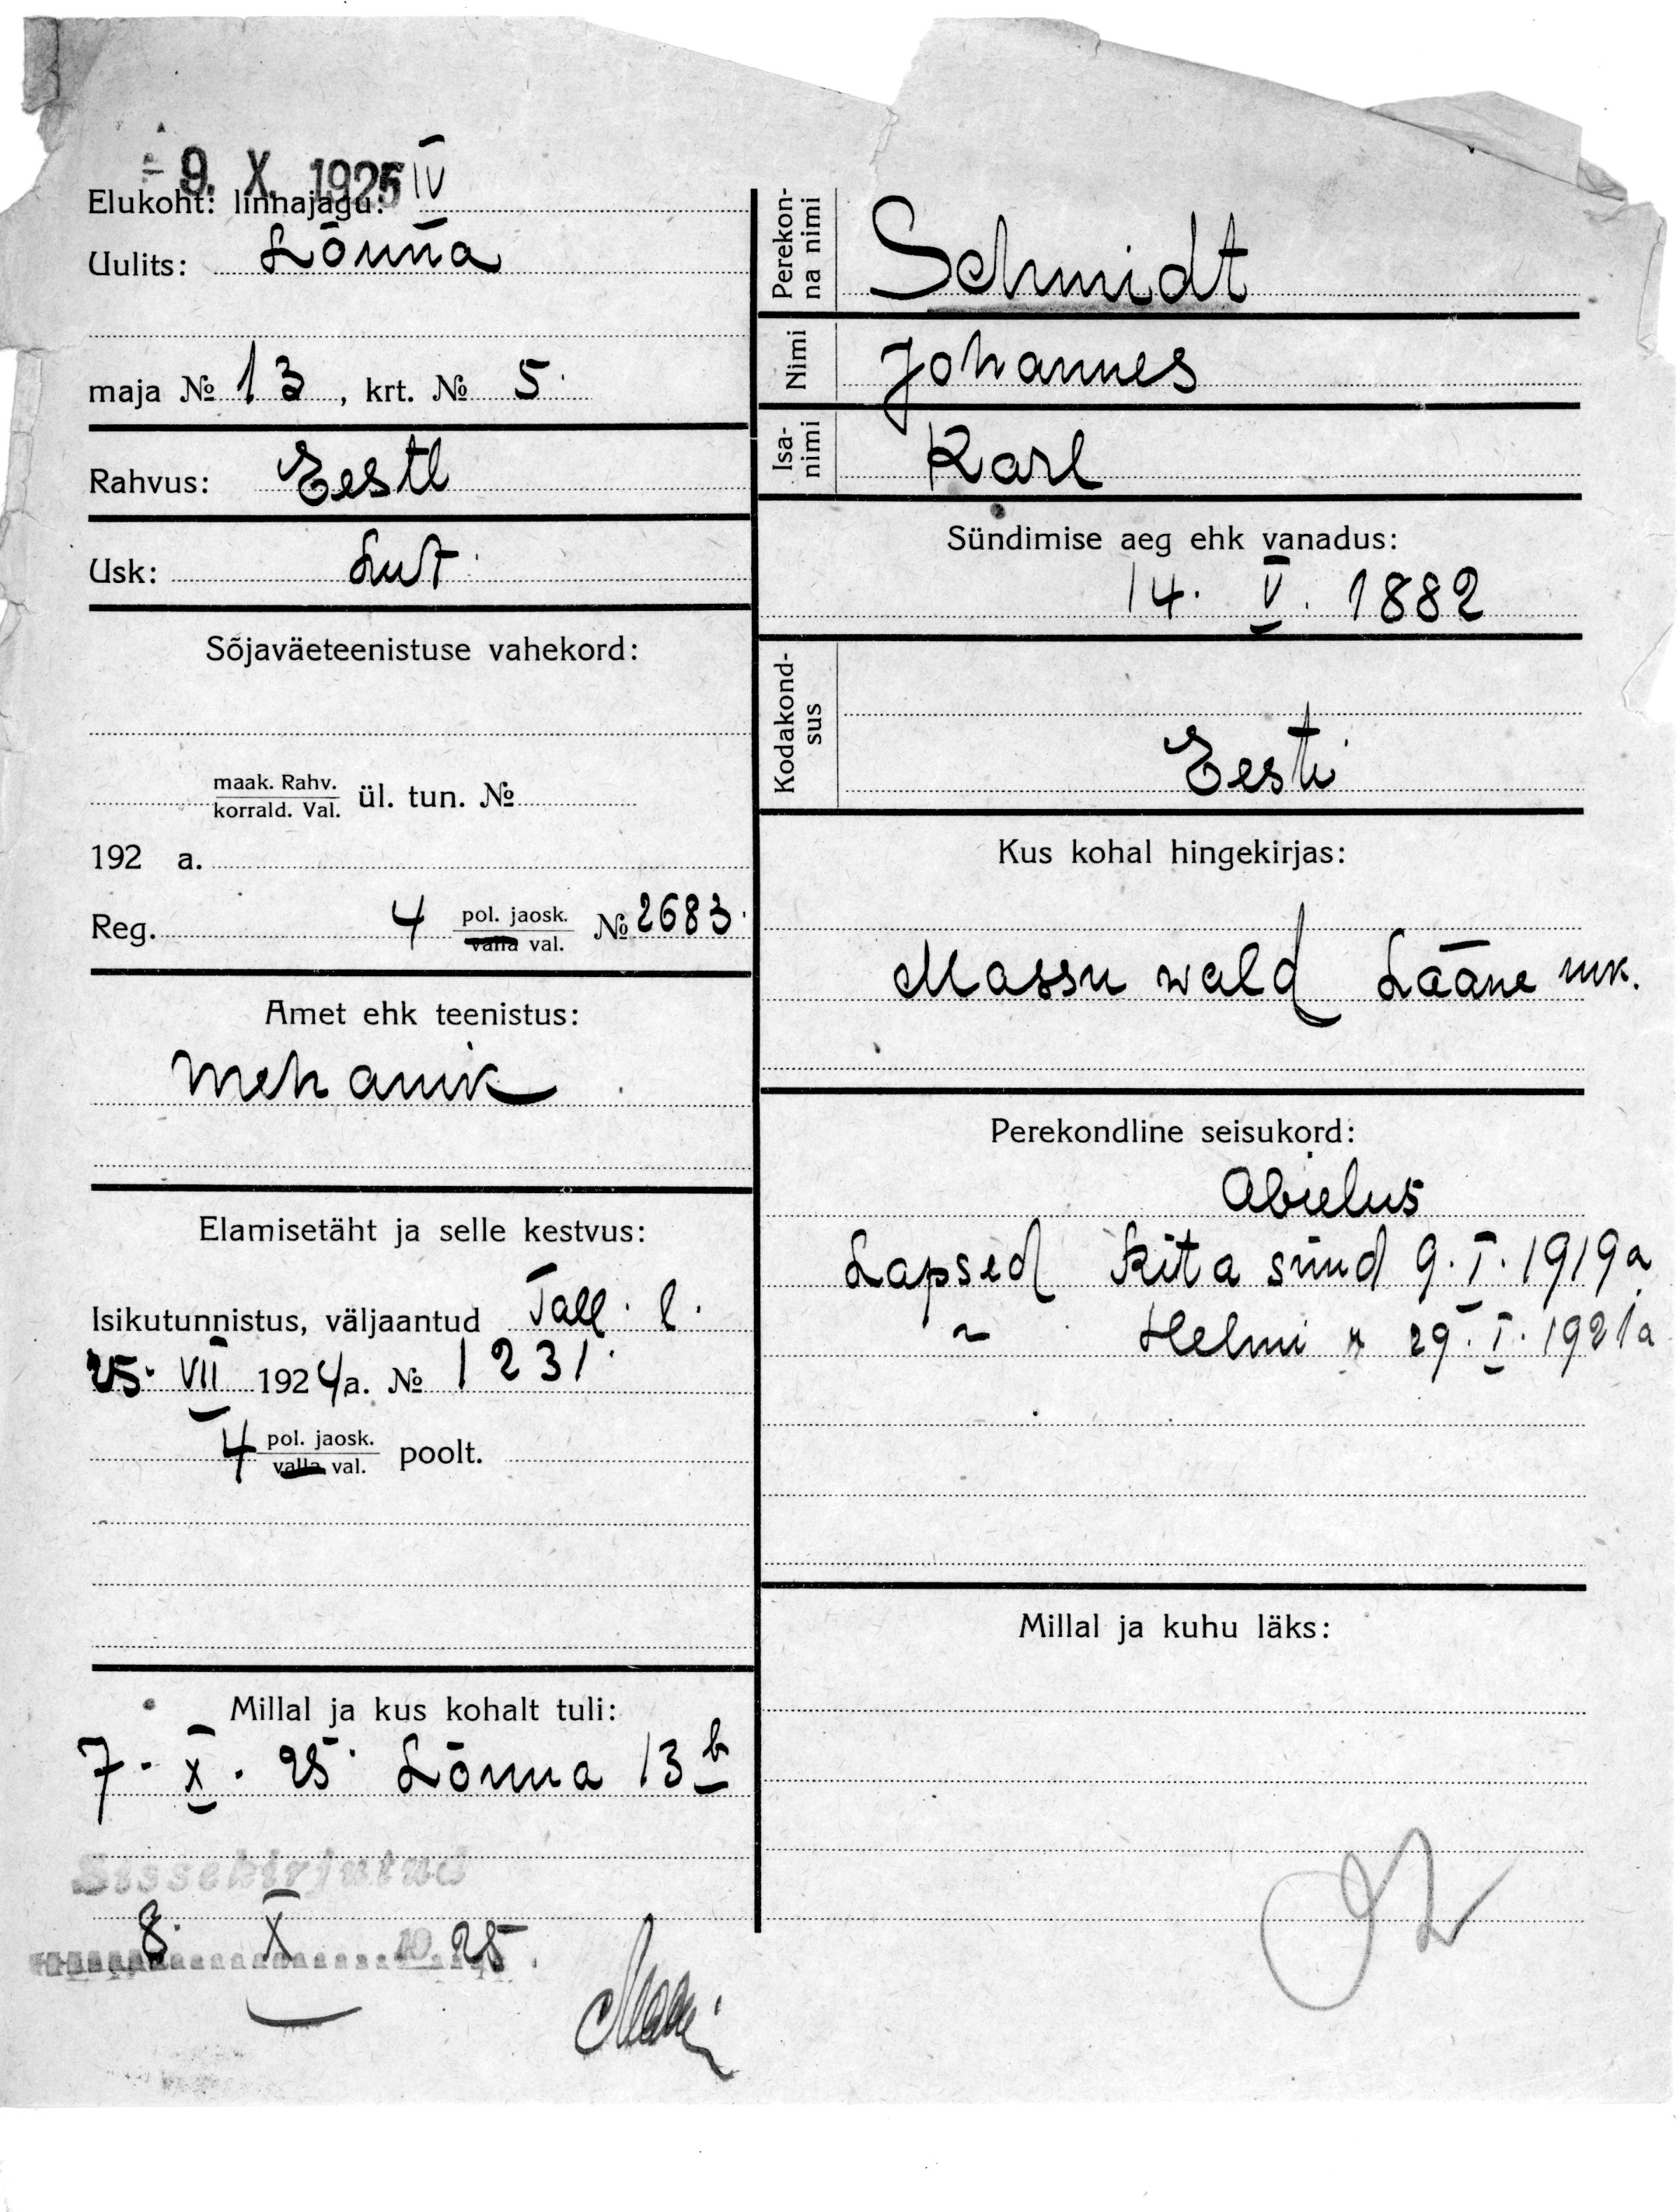 9. X. 1925
Elukoht: linnajagu: IV
Uulits: Lõuna
maja № 13, krt. № 5.
Rahvus: Eestl
Usk: Lut.
Sõjaväeteenistuse vahekord:
maak. Rahv.
korrald. Val. ül. tun. №
192 a.
Reg. 4 pol. jaosk. № 2683.
valla val.
Amet ehk teenistus:
mehanik
Elamisetäht ja selle kestvus:
Isikutunnistus, väljaantud Tall. l.
25. VII 1924 a. № 1231.
4 pol. jaosk. poolt.
valla val.
Millal ja kus kohalt tuli:
7. X. 25. Lõuna 13 b
Sissekirjutud
8. X 19 25.
Perekon-
na nimi
Schmidt
Nimi Johannes
Isa-
nimi
Karl
Sündimise aeg ehk vanadus:
14. V. 1882
Kodakond-
sus
Eesti
Kus kohal hingekirjas:
Massu wald Lääne mk.
Perekondline seisukord:
Abielus
Lapsed Rita sünd 9. I. 1919 a
" Helmi " 29. I. 1921 a
Millal ja kuhu läks: